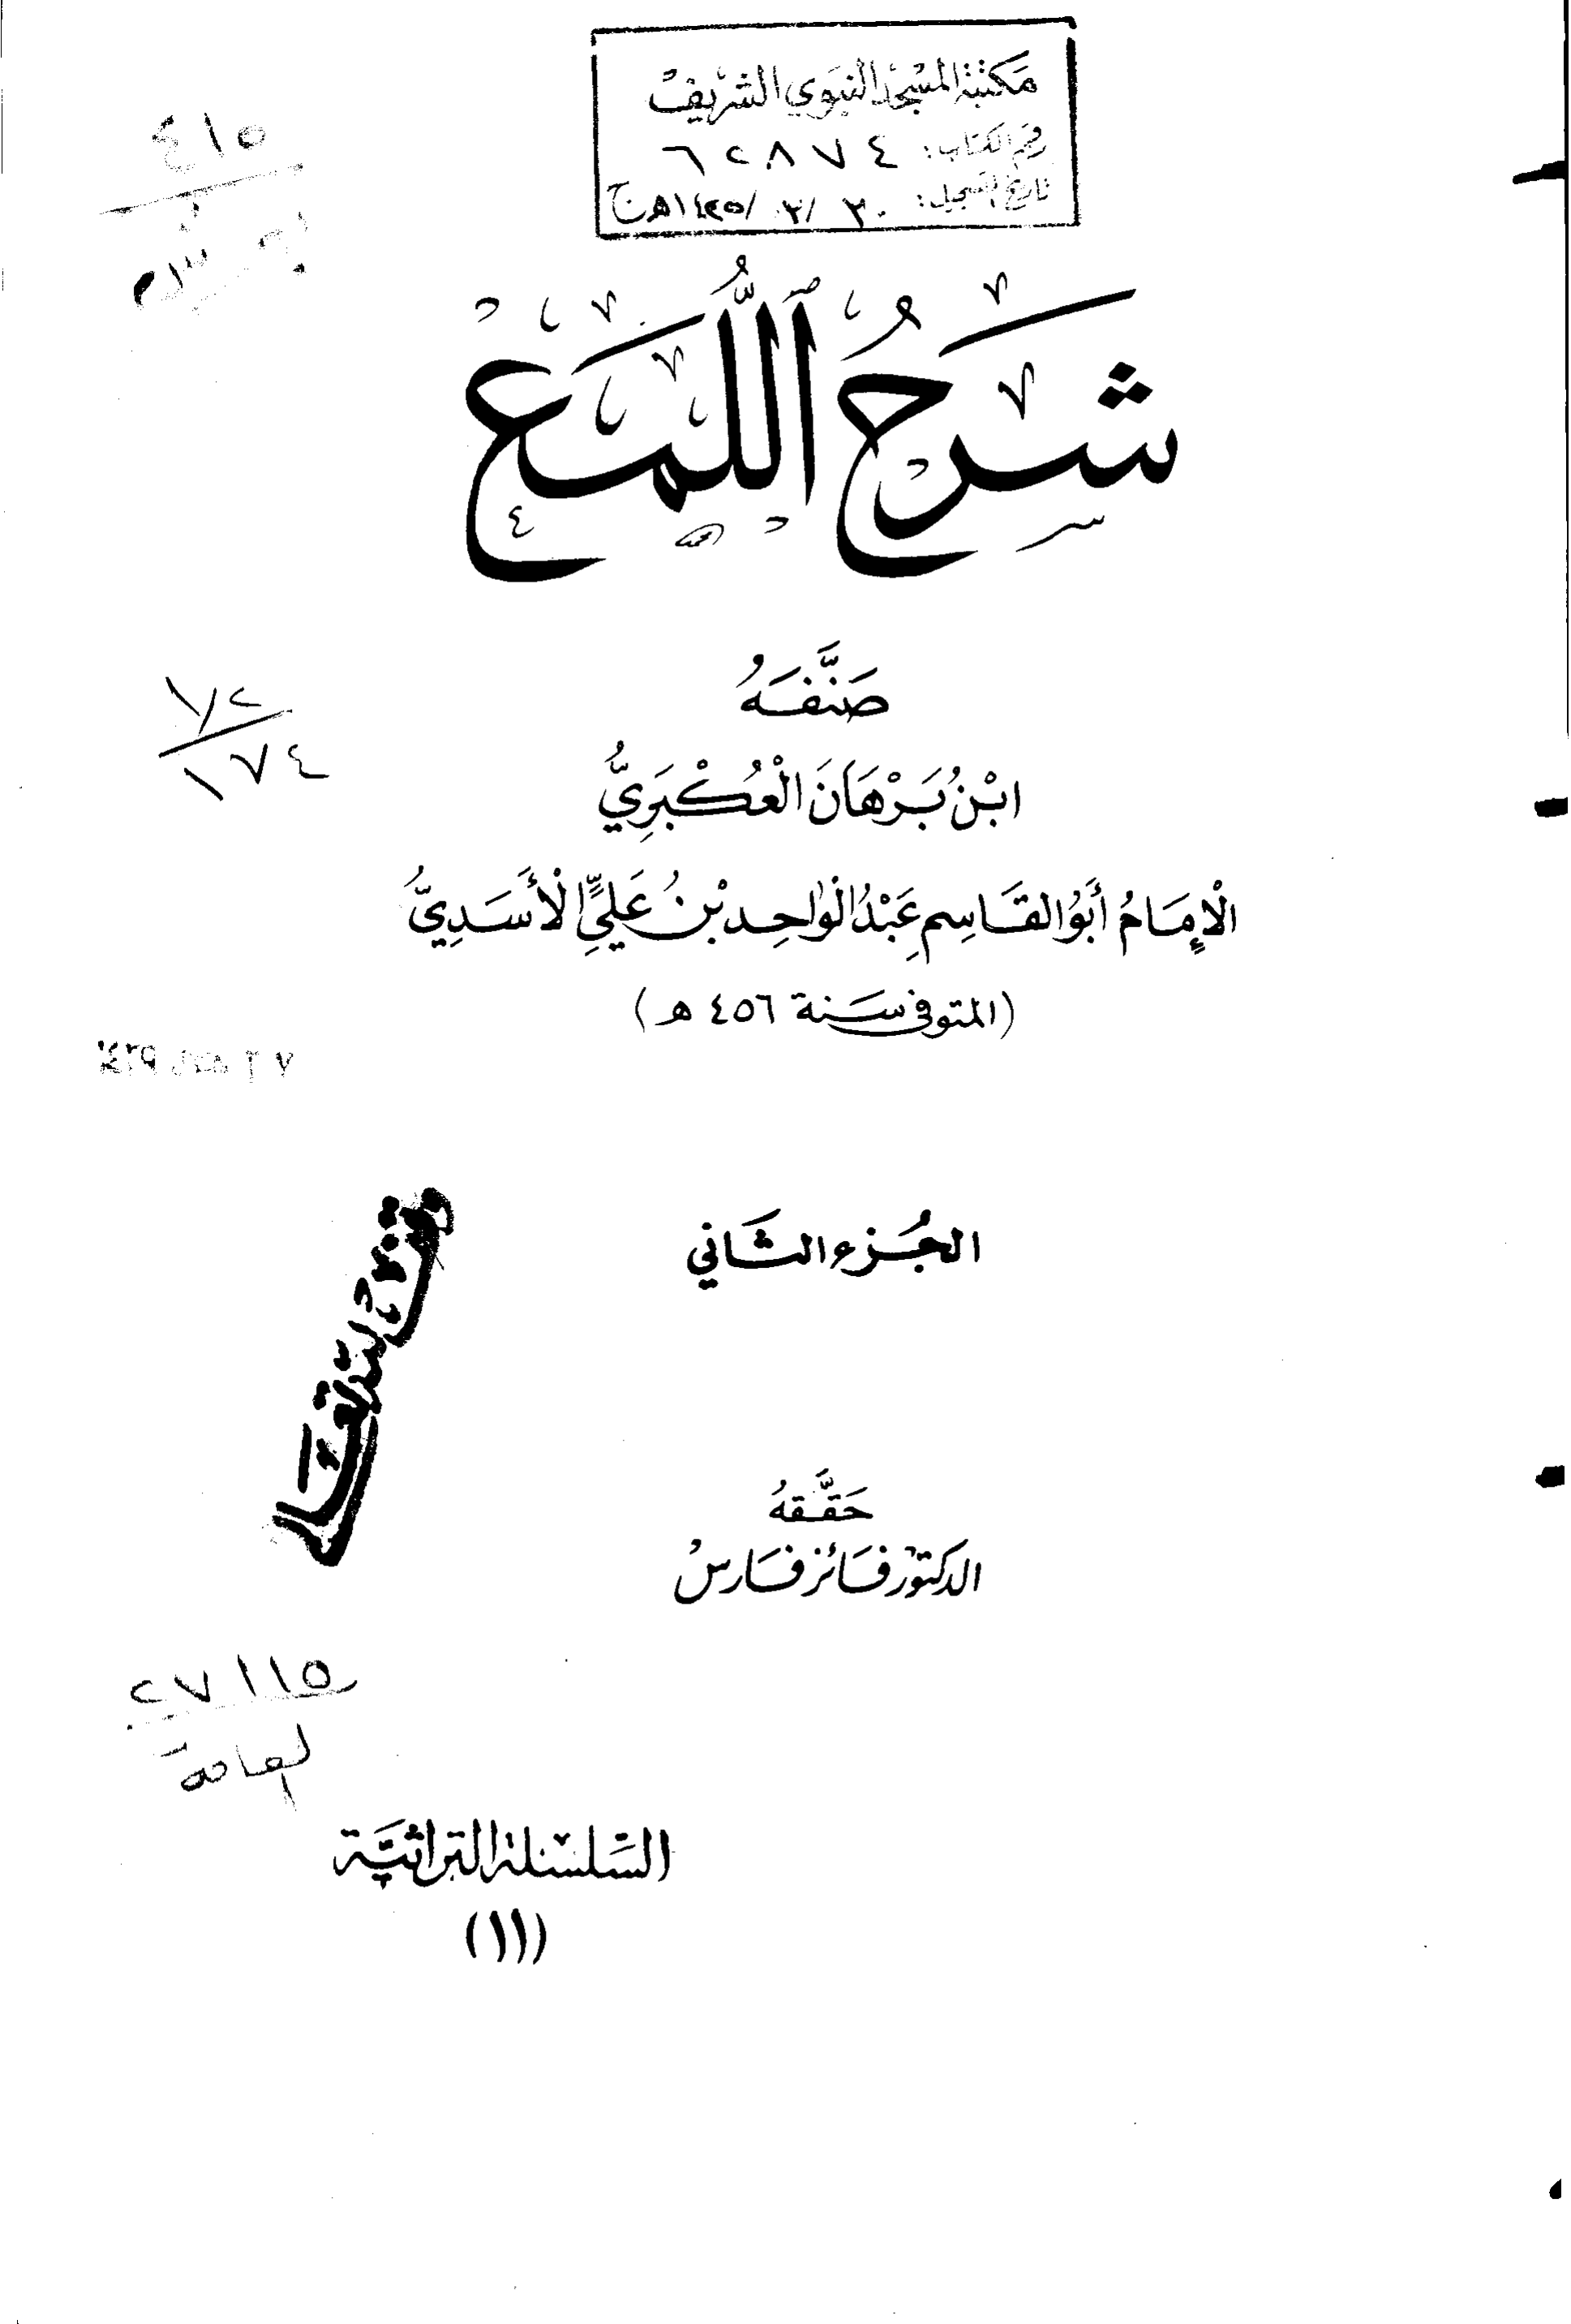 مكتبة المسجد النبوي الشريف
رقم الكتاب: ٦٢٨٧٤
تاريخ التسجيل: ٣٠ /٣ /١٤٢٥هـ ج
٤١٥
شَرْحُ ٱللُّمَع
صَنَّفَهُ
٧٢
١٧٤
ابْنُ بَرْهَانَ الْعُكْبَرِيُّ
الْإِمَامُ أَبُو القَاسِمِ عَبْدُ الْوَاحِد بْنُ عَلِيٍّ الْأَسَدِيُّ
(المتوفى سَنة ٤٥٦ هـ)
الجُزء الثَاني
حَقَّقهُ
الدكتور فَائز فَارس
٢٧١١٥
العامة
السِّلسلة التراثيَّة
(١١)